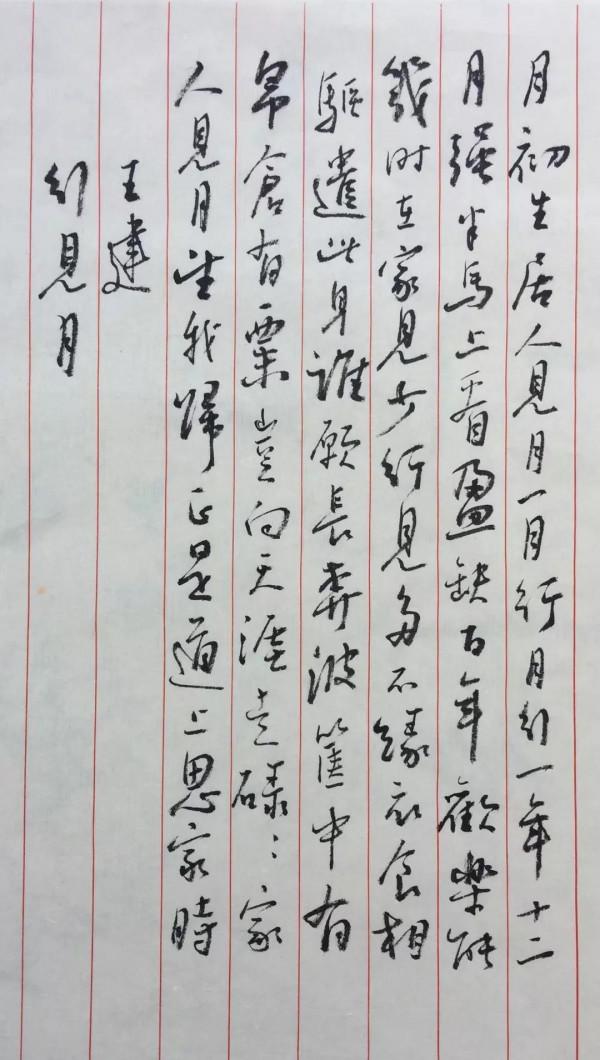 月初生居人見月一月行月行一年十二
月强半馬上看盈缺百年歡樂能
幾时在家見少行見多不緣衣食相
驅遣此身誰願長奔波篋中有
帛倉有粟豈向天涯走碌々家
人見月望我歸正是道上思家時
王建
行見月